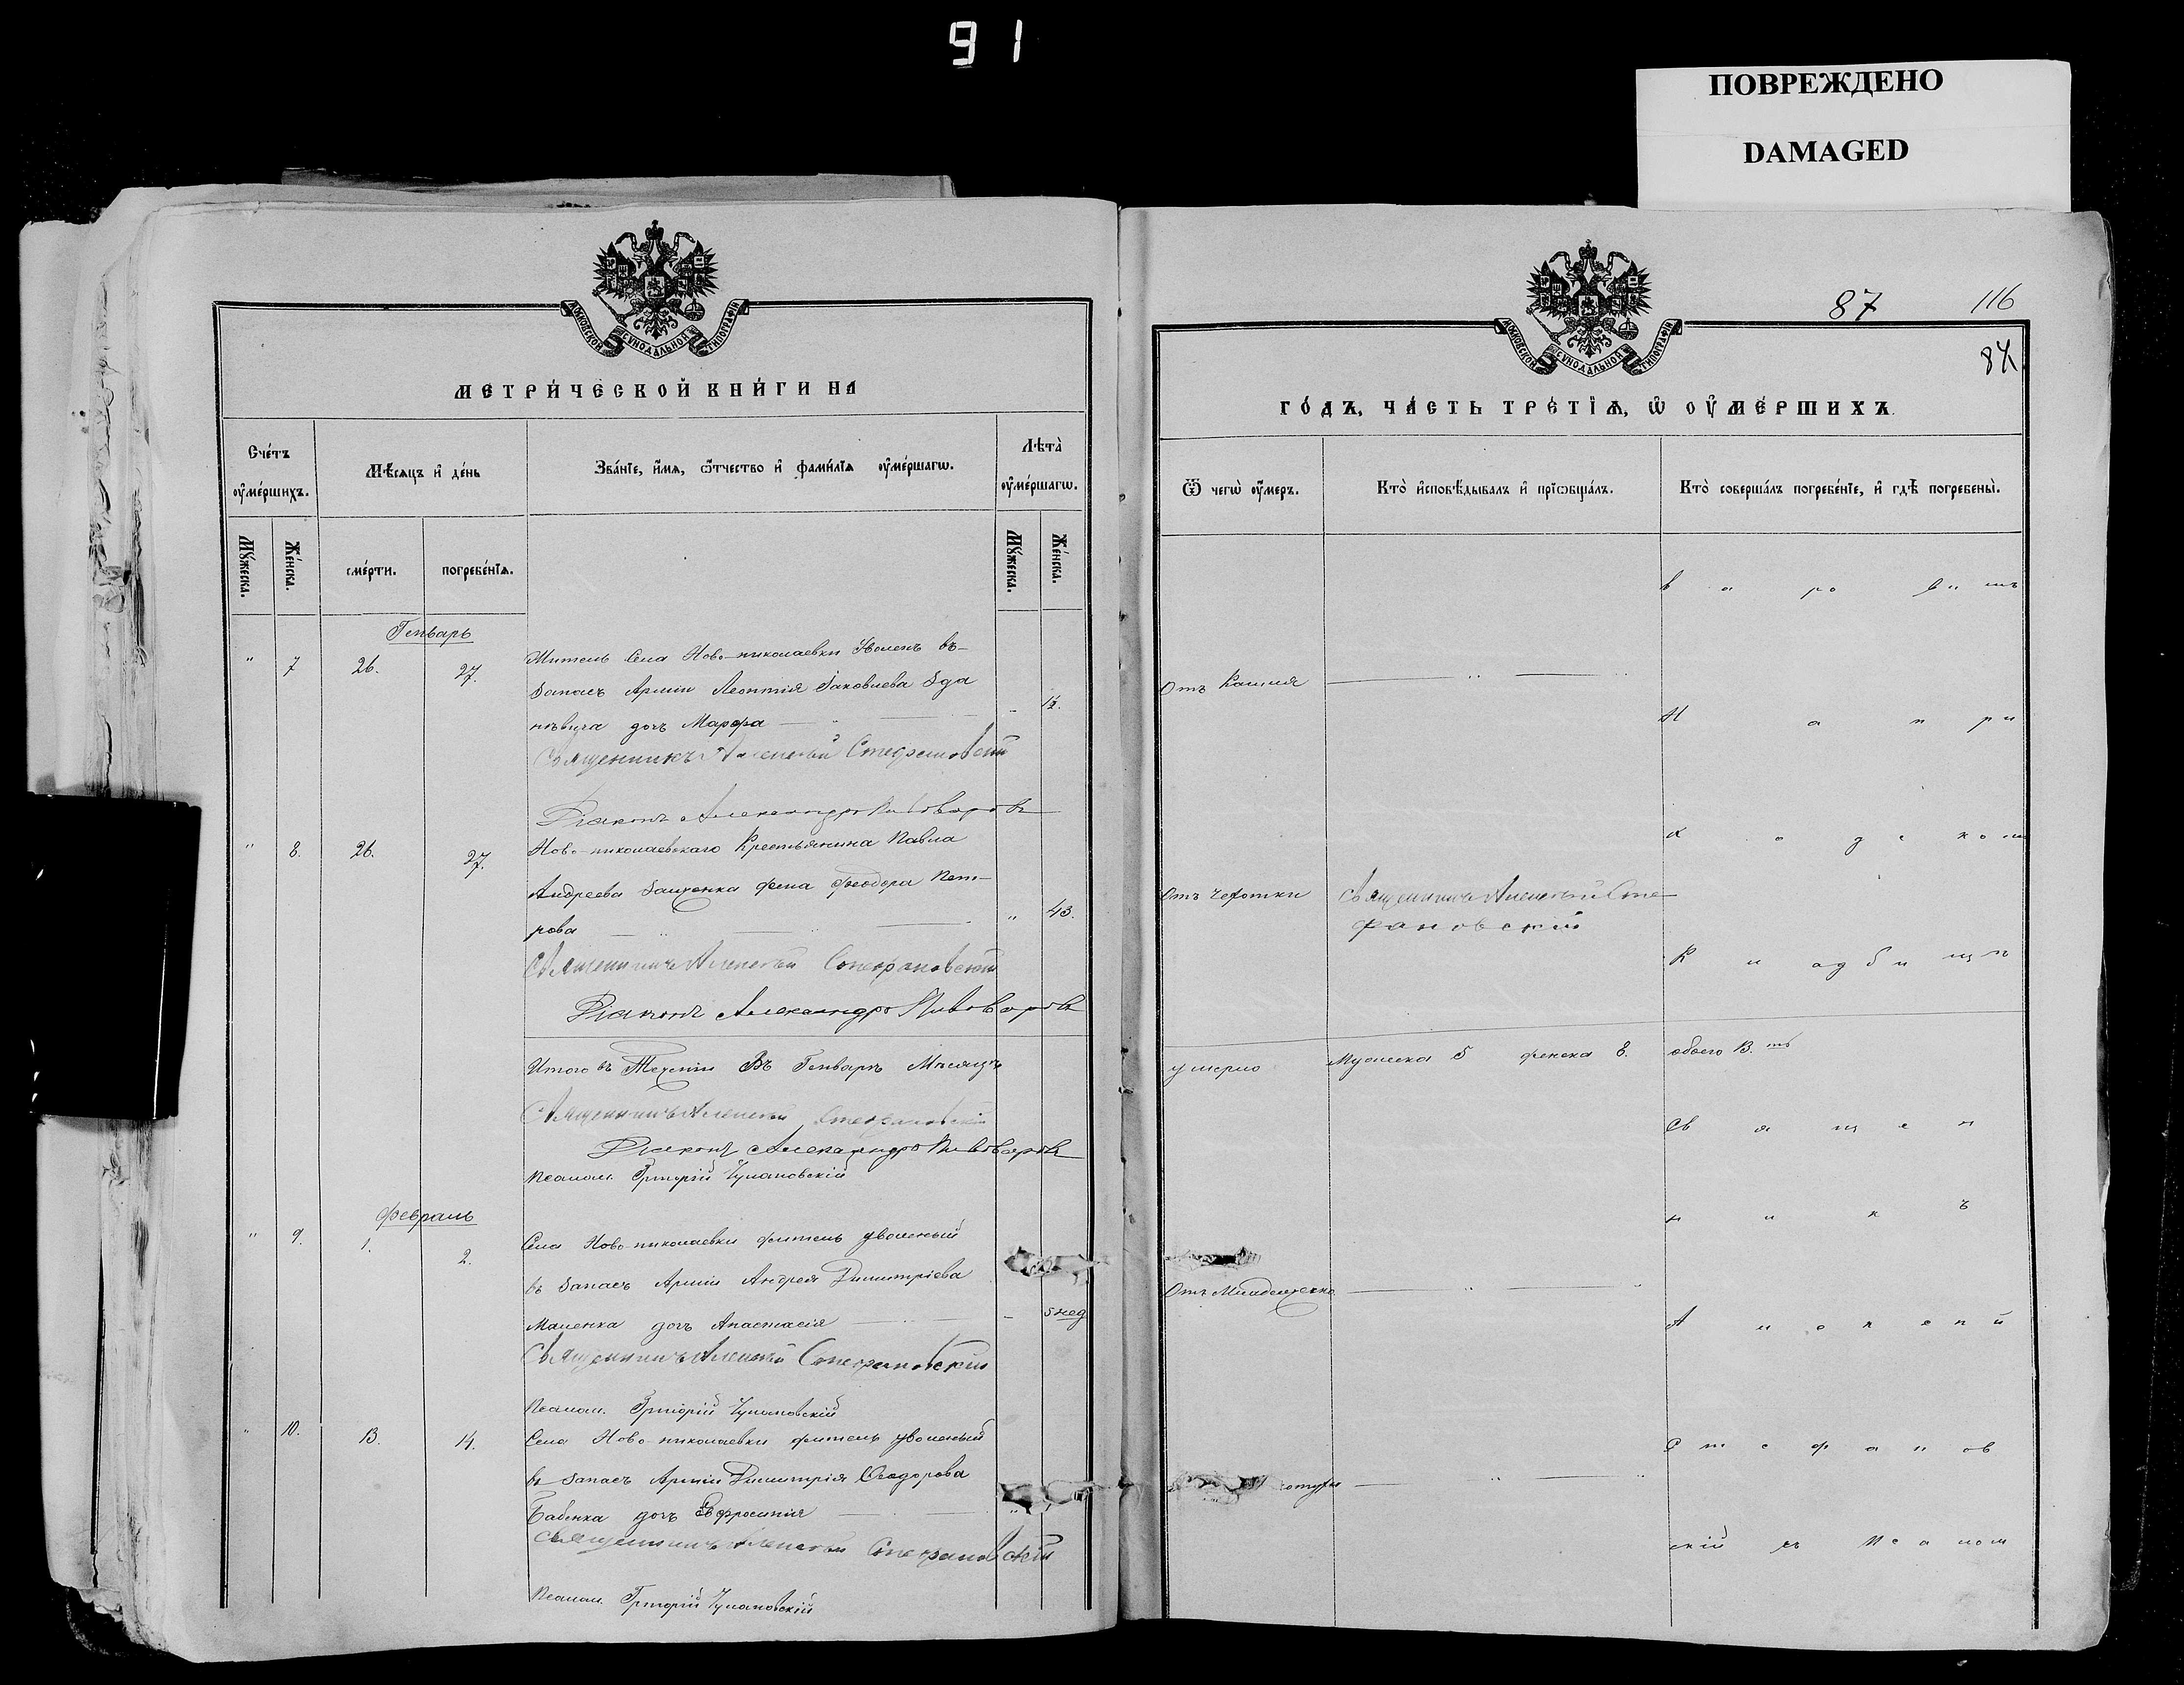 91
ПОВРЕЖДЕНО
DAMAGED
МОСКОВСКОЙ СѴНОДАЛЬНОЙ ТИПОГРАФІИ
МЕТРИ́ЧЕСКОЙ КНИ́ГИ НА
Сче́тъ ᲂу҆ме́ршихъ.
Мѣ́сяцъ и҆ де́нь
Зва́нїе, и҆́мя, ѻ҆́тчество и҆ фами́лїя ᲂу҆ме́ршагѡ.
Лѣта̀ ᲂу҆ме́ршагѡ.
Мꙋ́жеска.
Же́нска.
сме́рти.
погребе́нїѧ.
Мꙋ́жеска.
Же́нска.
Генварь
" 7 26. 27. Житель Села Ново-николаевки Уволенъ въ-
Запасъ Арміи Леонтія Яковлева Зда
нѣвича дочь Марфа
Священникъ Алексѣй Стефановскій
Діаконъ Александръ Пивоваровъ
" 8. 26. 27. Ново-николаевскаго Крестьянина Павла
Андреева Заиченка жена Феодора Пет-
рова " 43.
Священникъ Алексѣй Стефановскій
Діаконъ Александръ Пивоваровъ
Итого въ Теченіи Въ Генварѣ Мѣсяцѣ
Священникъ Алексѣй Стефановскій
Діаконъ Александръ Пивоваровъ
Псалом. Григорій Чулановскій
Февраль
" 9. 1. 2. Села Ново-николаевки житель уволеный
въ Запасъ Арміи Андрея Димитріева
Маленка дочь Анастасія 5 нед
Священникъ Алексѣй Стефановскій
Псалом. Григорій Чулановскій
" 10. 13. 14. Села Ново-николаевки житель уволеный
въ Запасъ Арміи Димитрія Феодорова
Бабенка дочь Евфросинія
Священникъ Алексѣй Стефановскій
Псалом. Григорій Чулановскій
МОСКОВСКОЙ СѴНОДАЛЬНОЙ ТИПОГРАФІИ
87 116
87
ГО́ДЪ, ЧА́СТЬ ТРЕ́ТЇѦ, Ѡ҆ ОУ҆МЕ́РШИХЪ.
Ѿ чегѡ̀ ᲂу҆́меръ.
Кто̀ и҆сповѣ́дывалъ и҆ прїѡбща́лъ.
Кто̀ соверша́лъ погребе́нїе, и҆ гдѣ̀ погребены̀.
в а ро в ымъ
Отъ Кашля
Н а при
Отъ Чехотки Священникъ Алексѣй Сте-
фановскій
х о д с ком
К л адб и щѣ
умерло Мужеска 5 женска 8. обоего 13. ть
Св я щ е н
н и к ъ
Отъ Младенческо
А л е к с ѣ й
С т е ф а н ов
скій съ П с а лом